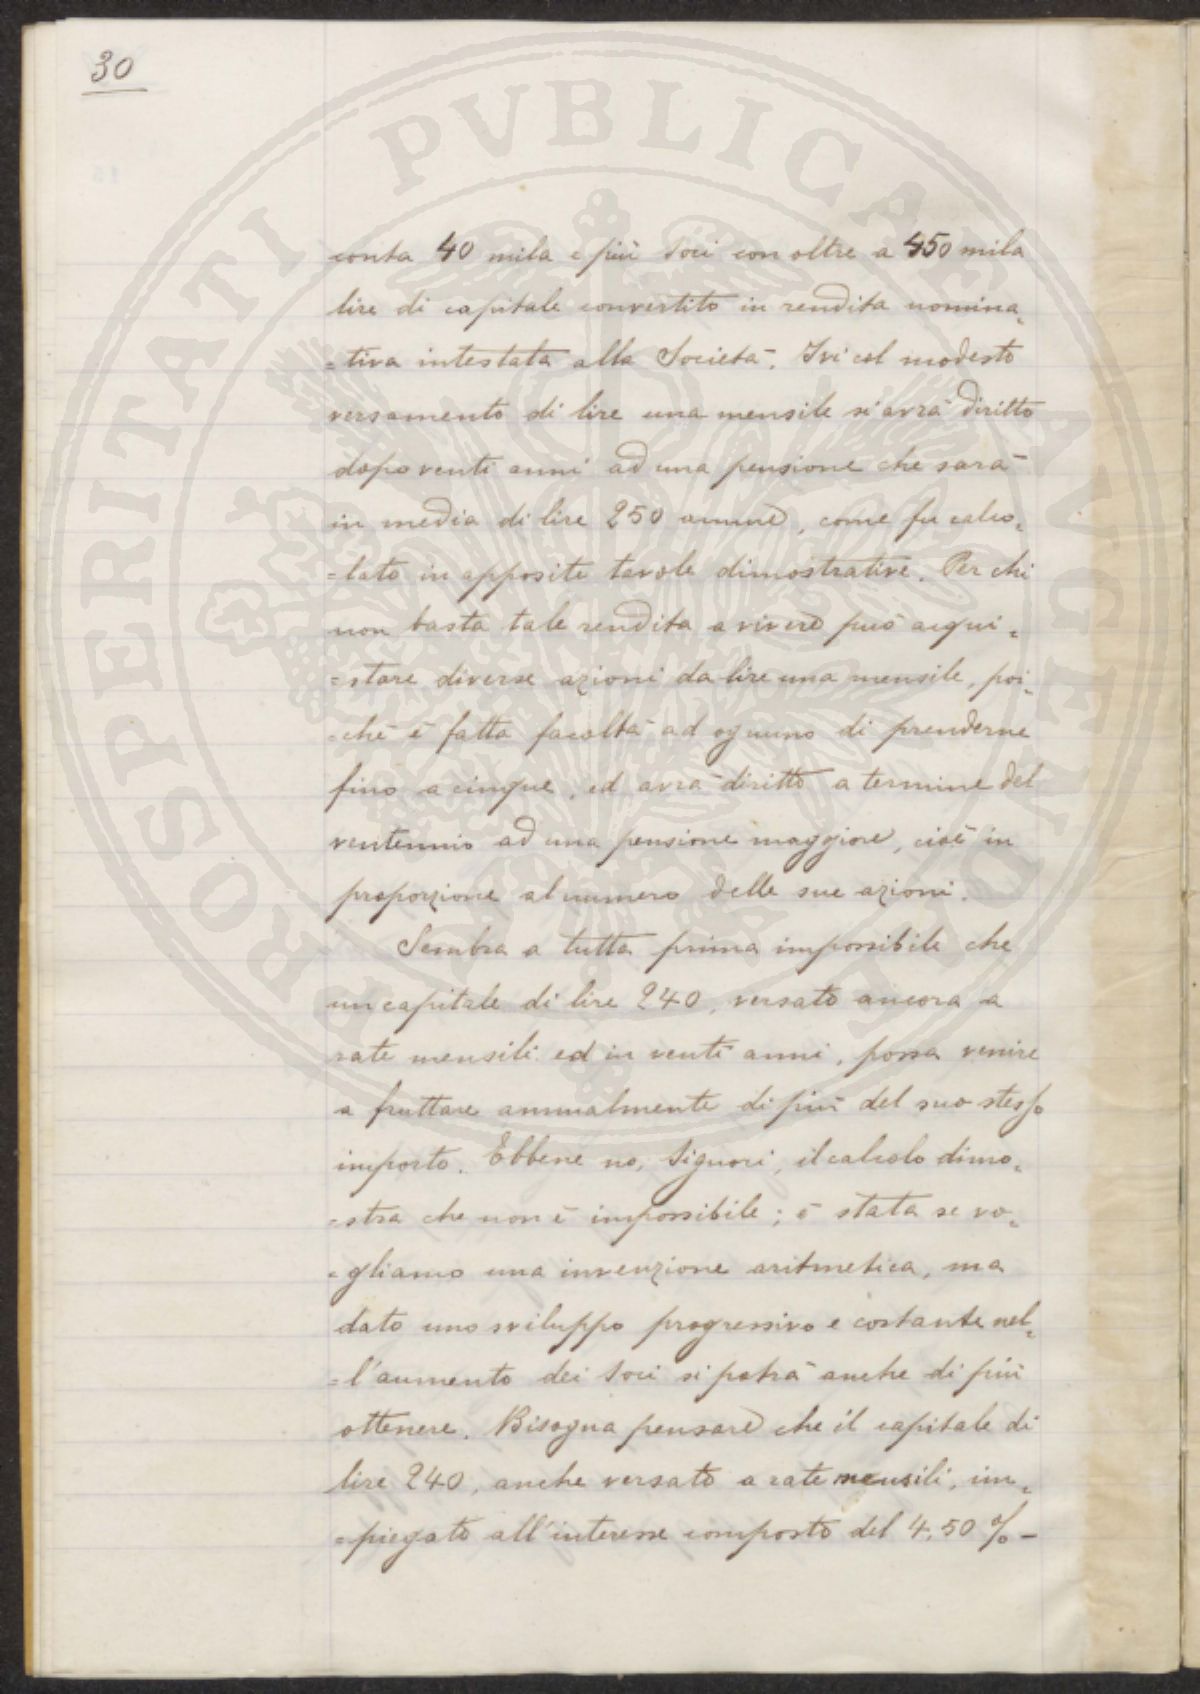 30
PROSPERITATI PVBLICAE AVGENDAE
conta 40 mila e più soci con oltre a 450 mila
lire di capitale convertito in rendita nomina=
=tiva intestata alla Società. Ivi col modesto
versamento di lire una mensile si avrà diritto
dopo venti anni ad una pensione che sarà
in media di lire 250 annue, come fu calco=
=lato in apposite tavole dimostrative. Per chi
non basta tale rendita a vivere può acqui=
=stare diverse azioni da lire una mensile, poi=
=chè è fatta facoltà ad ognuno di prenderne
fino a cinque, ed avrà diritto a termine del
ventennio ad una pensione maggiore, cioè in
proporzione al numero delle sue azioni.
Sembra a tutta prima impossibile che
un capitale di lire 240, versato ancora a
rate mensili ed in venti anni, possa venire
a fruttare annualmente di più del suo stesso
importo. Ebbene no, Signori, il calcolo dimo=
=stra che non è impossibile; è stata se vo=
=gliamo una invenzione aritmetica, ma
dato uno sviluppo progressivo e costante nel=
=l'aumento dei soci si potrà anche di più
ottenere. Bisogna pensare che il capitale di
lire 240, anche versato a rate mensili, im=
=piegato all'interesse composto del 4,50 % -